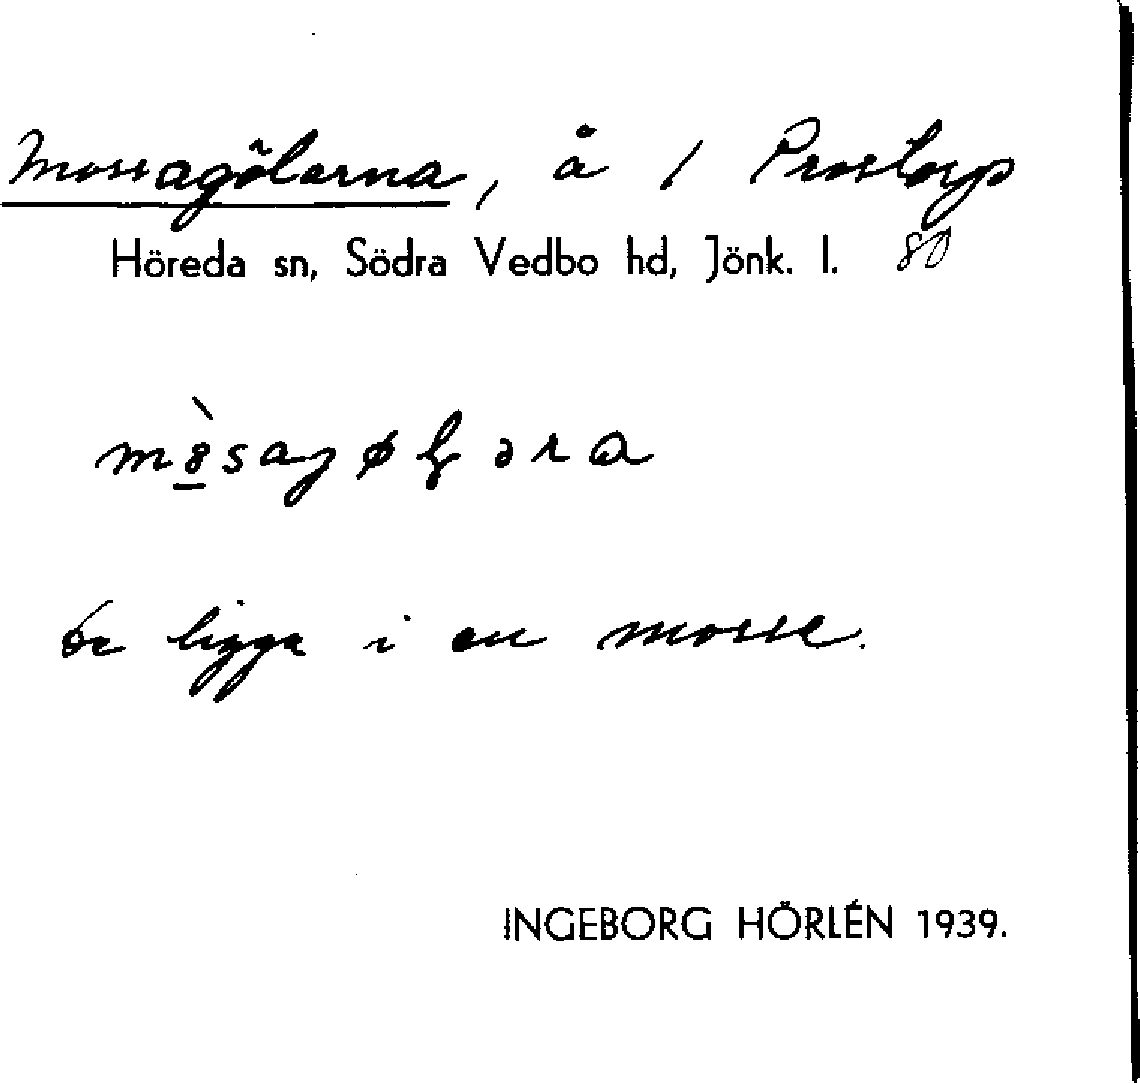 Mossagölarna, å 1 Prostorp
Höreda sn, Södra Vedbo hd, Jönk. l. 80
De ligga i en mosse.
INGEBORG HÖRLÉN 1939.